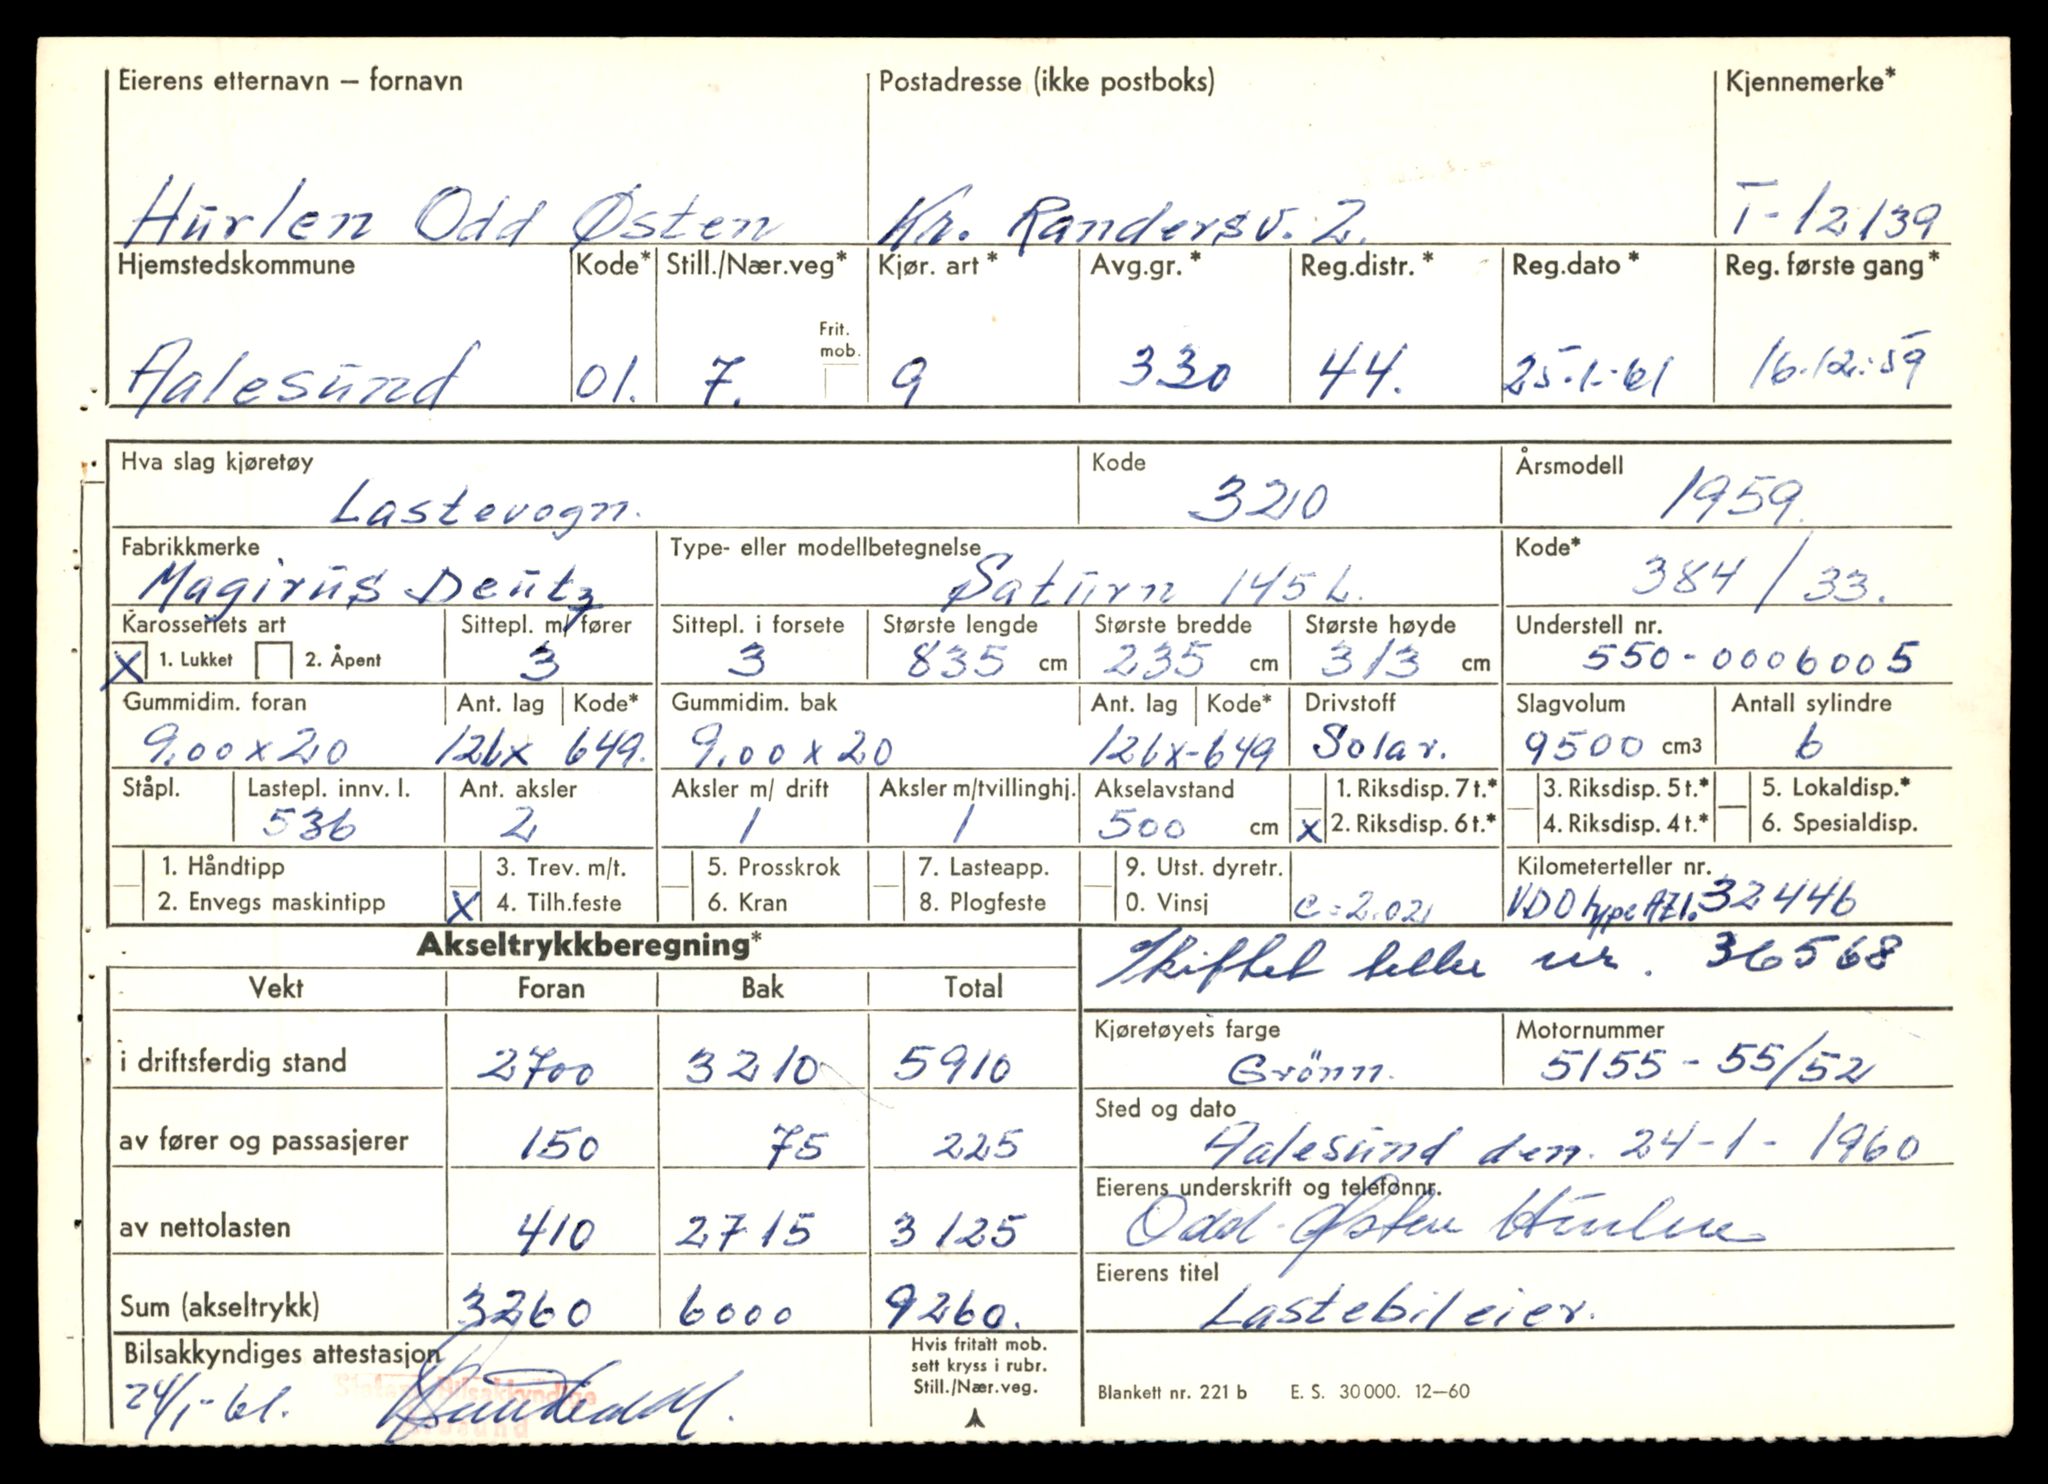 Eierens etternavn – fornavn Postadresse (ikke postboks) Kjennemerke*
Hurlen Odd Østen Kr. Randersv. 2. T-12139
Hjemstedskommune Kode* Still./Nær.veg* Kjør. art* Avg.gr.* Reg.distr.* Reg.dato* Reg. første gang*
Frit. mob.
Aalesund 01. 7. 9 330 44. 25-1-61 16.12.59
Hva slag kjøretøy Kode Årsmodell
Lastevogn. 3210 1959.
Fabrikkmerke Type- eller modellbetegnelse Kode*
Magirus Deutz Saturn 145 L. 384/33.
Karosseriets art Sittepl. m/ fører Sittepl. i forsete Største lengde Største bredde Største høyde Understell nr.
X 1. Lukket 2. Åpent 3 3 835 cm 235 cm 313 cm 550-0006005
Gummidim. foran Ant. lag Kode* Gummidim. bak Ant. lag Kode* Drivstoff Slagvolum Antall sylindre
9.00x20 126x 649. 9.00x20 126x-649 Solar. 9500 cm3 6
Ståpl. Lastepl. innv. l. Ant. aksler Aksler m/ drift Aksler m/tvillinghj. Akselavstand 1. Riksdisp. 7 t.* 3. Riksdisp. 5 t.* 5. Lokaldisp.*
536 2 1 1 500 cm X 2. Riksdisp. 6 t.* 4. Riksdisp. 4 t.* 6. Spesialdisp.
1. Håndtipp 3. Trev. m/t. 5. Prosskrok 7. Lasteapp. 9. Utst. dyretr. Kilometerteller nr.
2. Envegs maskintipp X 4. Tilh.feste 6. Kran 8. Plogfeste 0. Vinsj c=2.02 VDO type AZ1.32446
Akseltrykkberegning* Skiftet teller nr. 36568
Vekt Foran Bak Total
Kjøretøyets farge Motornummer
i driftsferdig stand 2700 3210 5910 Grönn. 5155-55/52
Sted og dato
av fører og passasjerer 150 75 225 Aalesund den. 24-1-1960
Eierens underskrift og telefonnr.
av nettolasten 410 2715 3125 Odd Østen Hurlen
Eierens titel
Sum (akseltrykk) 3260 6000 9260. Lastebileier.
Bilsakkyndiges attestasjon Hvis fritatt mob.
sett kryss i rubr.
Still./Nær.veg.
24/1-61. Statens Bilsakkyndige
Blankett nr. 221 b E. S. 30 000. 12–60